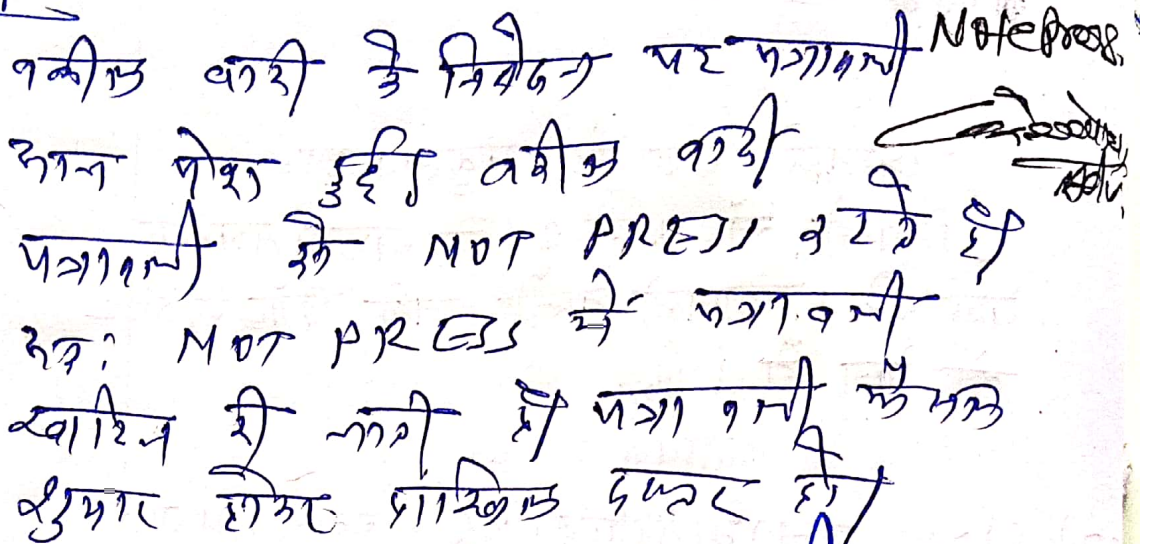 वकील वादी के निवेदन पर पत्रावली Not Press
आज पेश हुई। वकील वादी
पत्रावली को NOT PRESS करते है।
अतः NOT PRESS में पत्रावली
खारिज की जाती है। पत्रावली फैसल
शुमार होकर दाखिल दफ्तर हो।